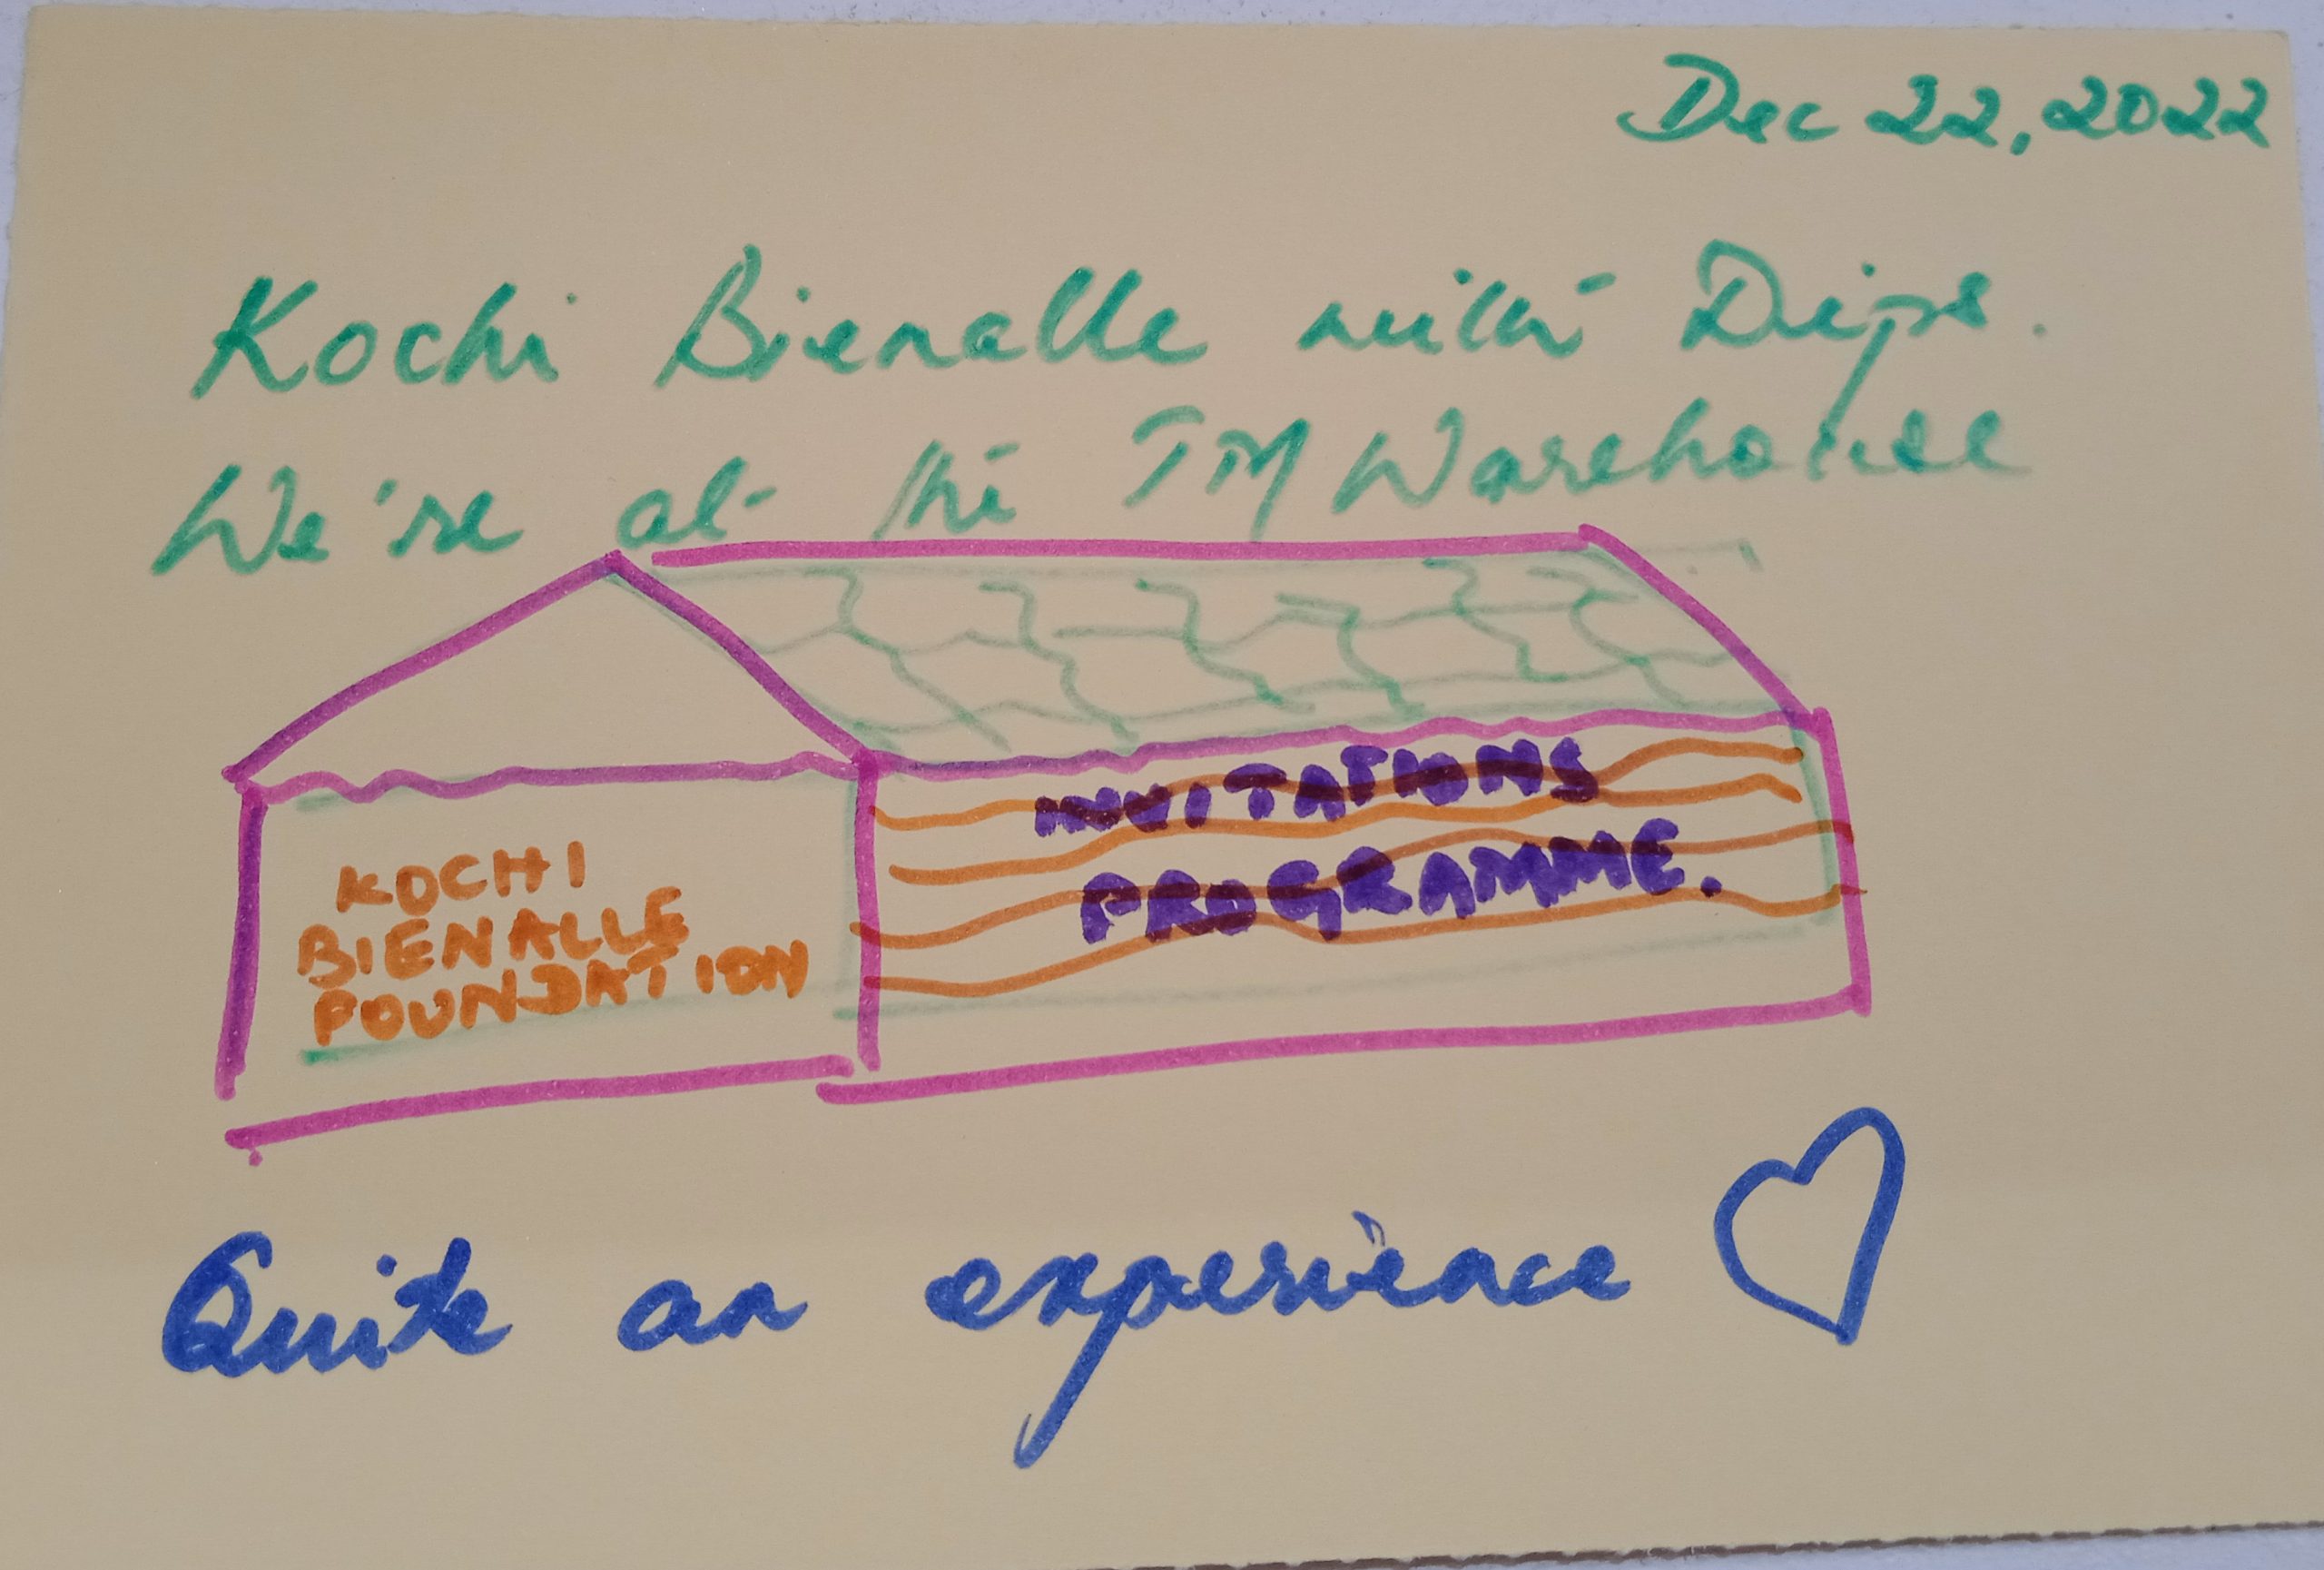 Dec 22, 2022
Kochi Bienalle with Dips.
We're at the TM Warehouse
KOCHI
BIENALLE
FOUNDATION
INVITATIONS
PROGRAMME.
Quite an experience